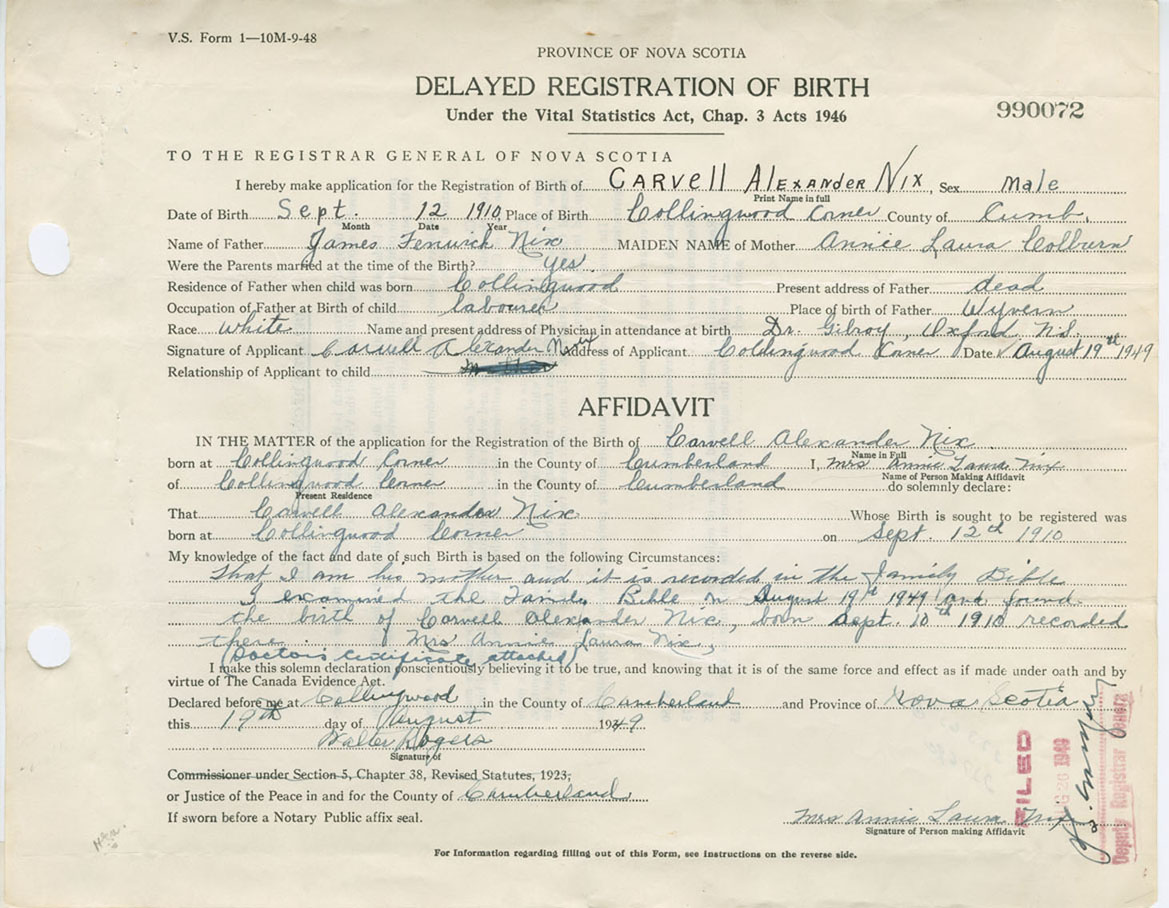 V.S. Form 1—10M-9-48
PROVINCE OF NOVA SCOTIA
DELAYED REGISTRATION OF BIRTH
Under the Vital Statistics Act, Chap. 3 Acts 1946
990072
TO THE REGISTRAR GENERAL OF NOVA SCOTIA
I hereby make application for the Registration of Birth of CARVell AlexANDER NIX, Sex Male
Print Name in full
Date of Birth Sept. 12 1910, Place of Birth Collingwood Corner County of Cumb.
Month Date Year
Name of Father James Fenwick Nix MAIDEN NAME of Mother Annie Laura Colburn
Were the Parents married at the time of the Birth? yes.
Residence of Father when child was born Collingwood Present address of Father dead
Occupation of Father at Birth of child labourer Place of birth of Father Wyvern
Race white Name and present address of Physician in attendance at birth Dr. Gilroy, Oxford N.S.
Signature of Applicant Carvell Alexander Nix Address of Applicant Collingwood Corner Date August 19th 1949
Relationship of Applicant to child
AFFIDAVIT
IN THE MATTER of the application for the Registration of the Birth of Carvell Alexander Nix
Name in Full
born at Collingwood Corner in the County of Cumberland I, Mrs Annie Laura Nix
Name of Person Making Affidavit
of Collingwood Corner in the County of Cumberland do solemnly declare:
Present Residence
That Carvell Alexander Nix Whose Birth is sought to be registered was
born at Collingwood Corner on Sept. 12th 1910
My knowledge of the fact and date of such Birth is based on the following Circumstances:
That I am his mother and it is recorded in the family Bible
I examined the Family Bible on August 19th 1949 and found
the birth of Carvell Alexander Nix, born Sept. 10th 1910 recorded
there. Mrs Annie Laura Nix,
Doctor's Certificate attached
I make this solemn declaration conscientiously believing it to be true, and knowing that it is of the same force and effect as if made under oath and by
virtue of The Canada Evidence Act.
Declared before me at Collingwood in the County of Cumberland and Province of Nova Scotia
this 19th day of August 1949
Walter Rogers
Signature of
Commissioner under Section 5, Chapter 38, Revised Statutes, 1923,
or Justice of the Peace in and for the County of Cumberland
If sworn before a Notary Public affix seal.
FILED
26 1949
Deputy Registrar General
Mrs Annie Laura Nix
Signature of Person making Affidavit
For Information regarding filling out of this Form, see instructions on the reverse side.